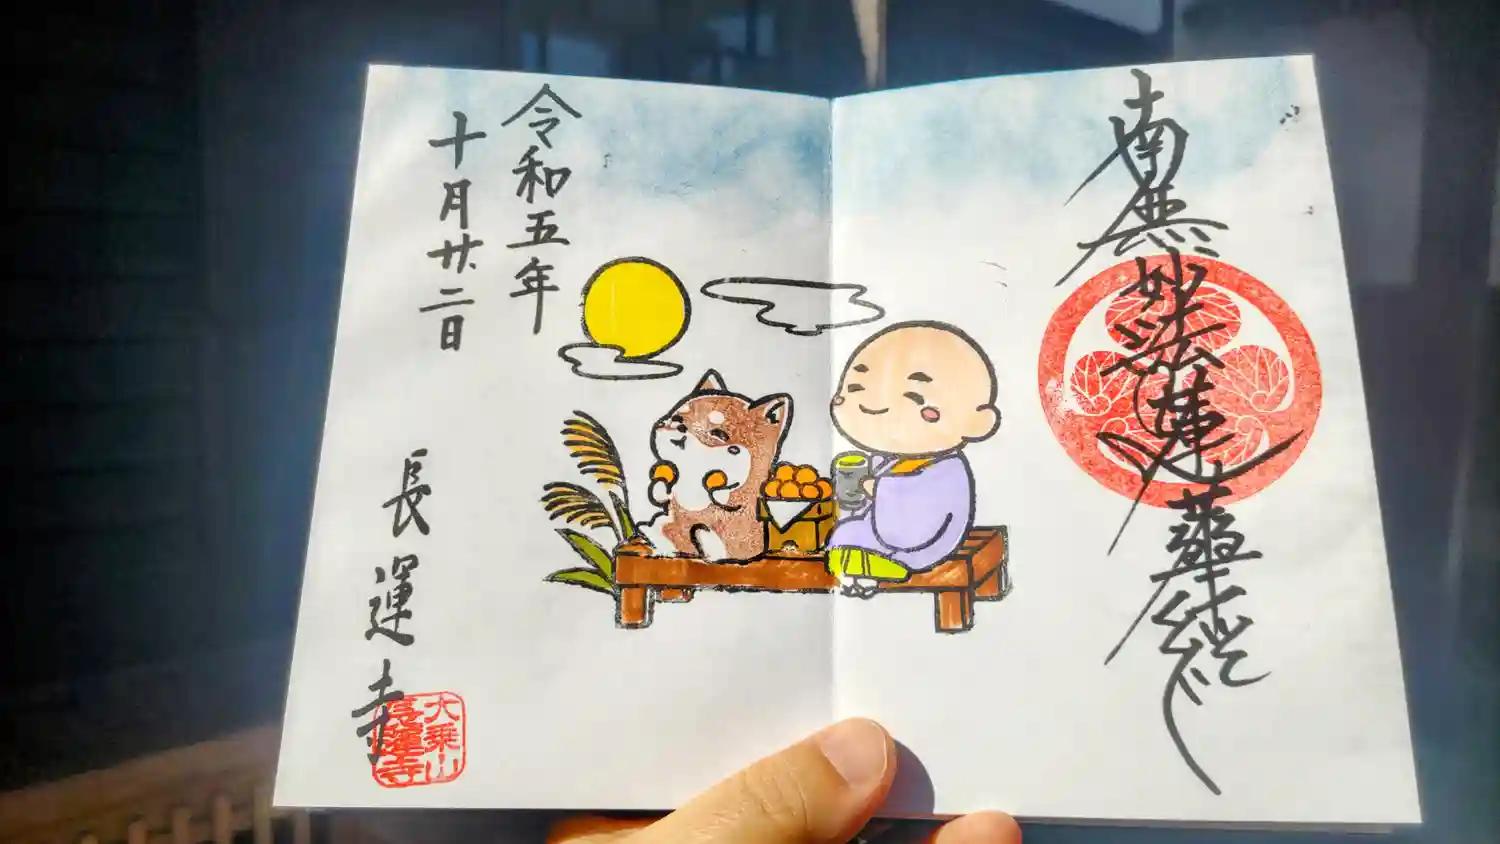 南無妙法蓮華経
令和五年
十月廿二日
長運寺
大乗山
長運寺